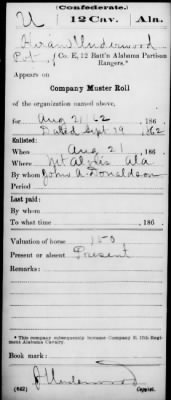 (Confederate.)
U 12 Cav. Ala.
Hiram Underwood
Pvt., Co. E, 12 Batt'n Alabama Partisan
Rangers.*
Appears on
Company Muster Roll
of the organization named above,
for Aug 21/62, 186
Dated Sept 19, 1862
Enlisted:
When Aug 21, 186
Where Ala
By whom John A. Donaldson
Period
Last paid:
By whom
To what time , 186 .
Valuation of horse 150
Present or absent Present
Remarks:
* This company subsequently became Company E, 12th Regiment Alabama Cavalry.
Book mark:
(642) Copyist.